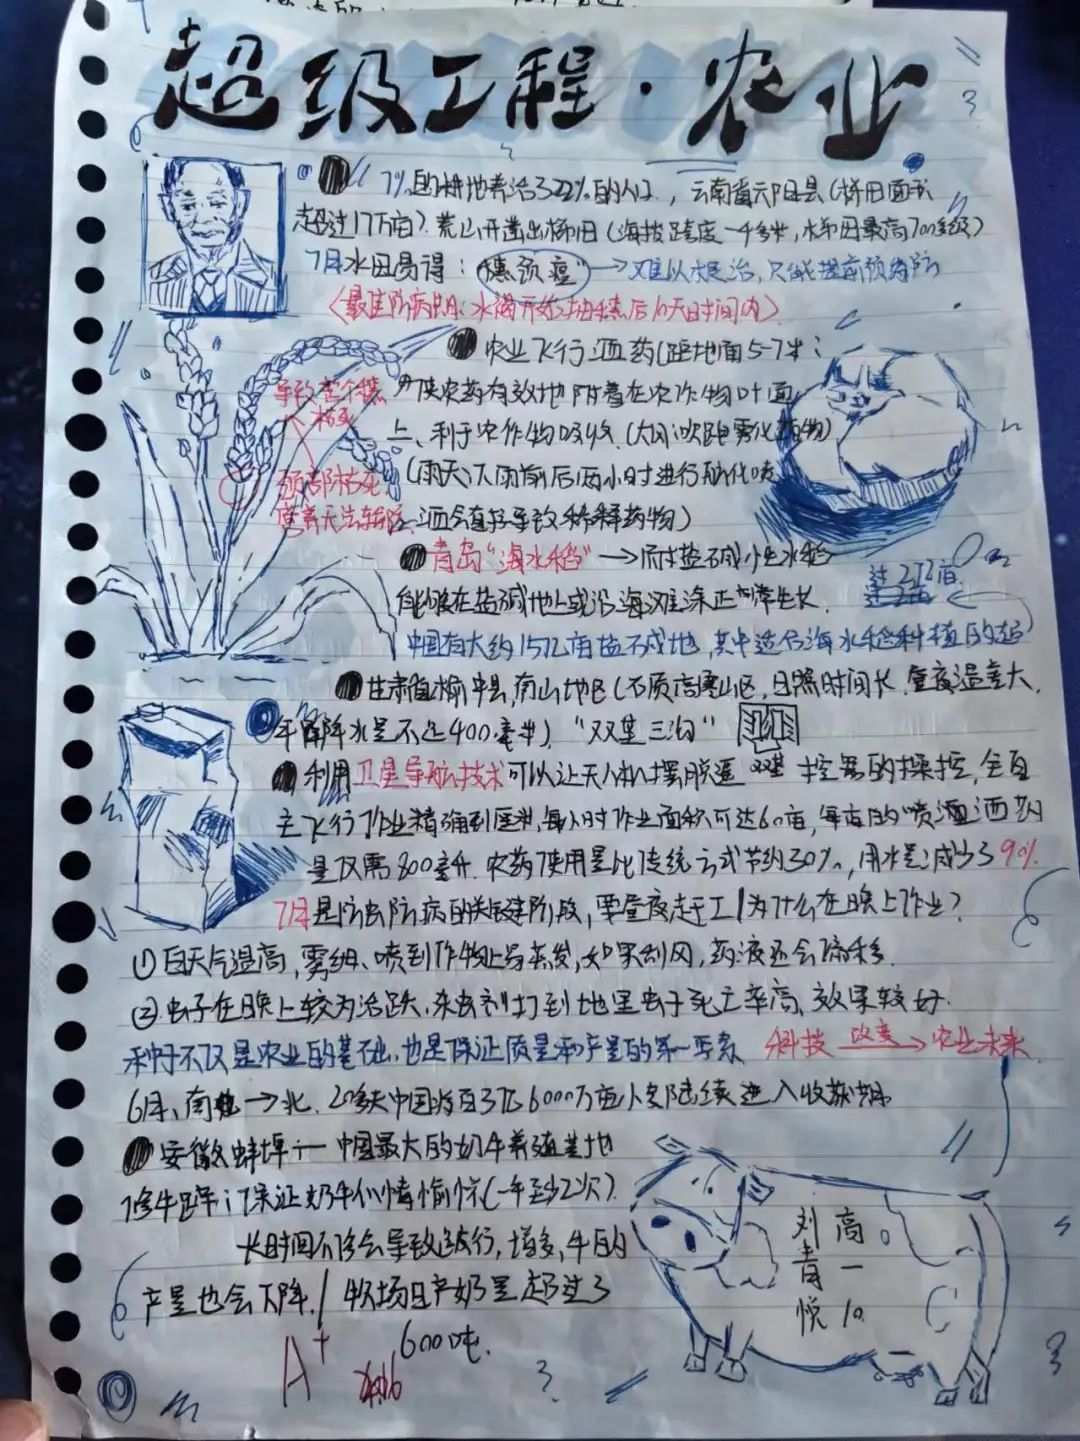 超级工程·农业
7%的耕地养活了22%的人口，云南省元阳县(梯田面积
超过17万亩).荒山开凿出梯田(海拔跨度一千多米,梯田最高700多级)
7月水田易得：“穗颈瘟”→难以根治,只能提前预防
(最佳防病期:水稻开始抽穗后10天时间内)
农业飞行洒药(距地面5-7米;
导致整个穗
枯死
颈部枯死
营养无法转
使农药有效地附着在农作物叶面
上、利于农作物吸收.(大风吹跑雾化药物)
(雨天:下雨前后两小时进行雾化喷
洒会直接导致稀释药物)
青岛“海水稻”→耐盐碱性水稻
能够在盐碱地上或沿海滩涂正常生长.
达2亿亩
中国有大约15亿亩盐碱地,其中适合海水稻种植的超
甘肃省榆中县,南山地区(石质高寒山区,日照时间长,昼夜温差大,
年降水量不足400毫米) “双垄三沟”
利用卫星导航技术可以让无人机摆脱遥 控器的操控,全自
主飞行作业精确到厘米,每小时作业面积可达60亩,每亩的喷洒药
量仅需800毫升.农药使用量比传统方式节约30%,用水量减少了9%.
7月是防虫防病的关键阶段,要昼夜赶工/为什么在晚上作业?
①白天气温高,雾细、喷到作物上易蒸发,如果刮风,药液还会偏移.
②虫子在晚上较为活跃.杀虫剂打到地里虫子死亡率高,效果较好.
种子不仅是农业的基础,也是保证质量和产量的第一要素. 科技 改变→农业未来.
6月、南→北.20多天中国将百3亿6000万亩小麦陆续进入收获期
安徽蚌埠:一 中国最大的奶牛养殖基地
修牛蹄:保证奶牛们心情愉悦(一年至少2次).
长时间不修会导致跛行,增多,牛的
产量也会下降./ 牧场日产奶量超过了
600吨.
刘青悦
高一
10
A+